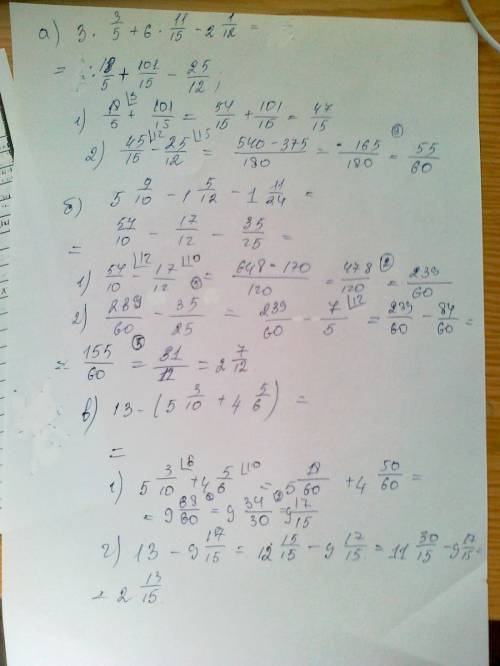 а) 3 · 3/5 + 6 · 11/15 - 2 1/12 =
= 18/5 + 101/15 - 25/12;
1) 18/5 + 101/15 = 54/15 + 101/15 = 47/15
2) 45/15 - 25/12 = 540-375/180 = 165/180 = 55/60
б) 5 9/10 - 1 5/12 - 1 11/24 =
= 54/10 - 17/12 - 35/25 =
1) 54/10 - 17/12 = 648-170/120 = 478/120 = 239/60
2) 239/60 - 35/25 = 239/60 - 7/5 = 239/60 - 84/60 =
= 155/60 = 31/12 = 2 7/12
в) 13 - (5 3/10 + 4 5/6) =
=
1) 5 3/10 + 4 5/6 = 5 18/60 + 4 50/60 =
= 9 68/60 = 9 34/30 = 9 17/15
2) 13 - 9 17/15 = 12 15/15 - 9 17/15 = 11 30/15 - 9 17/15 =
= 2 13/15